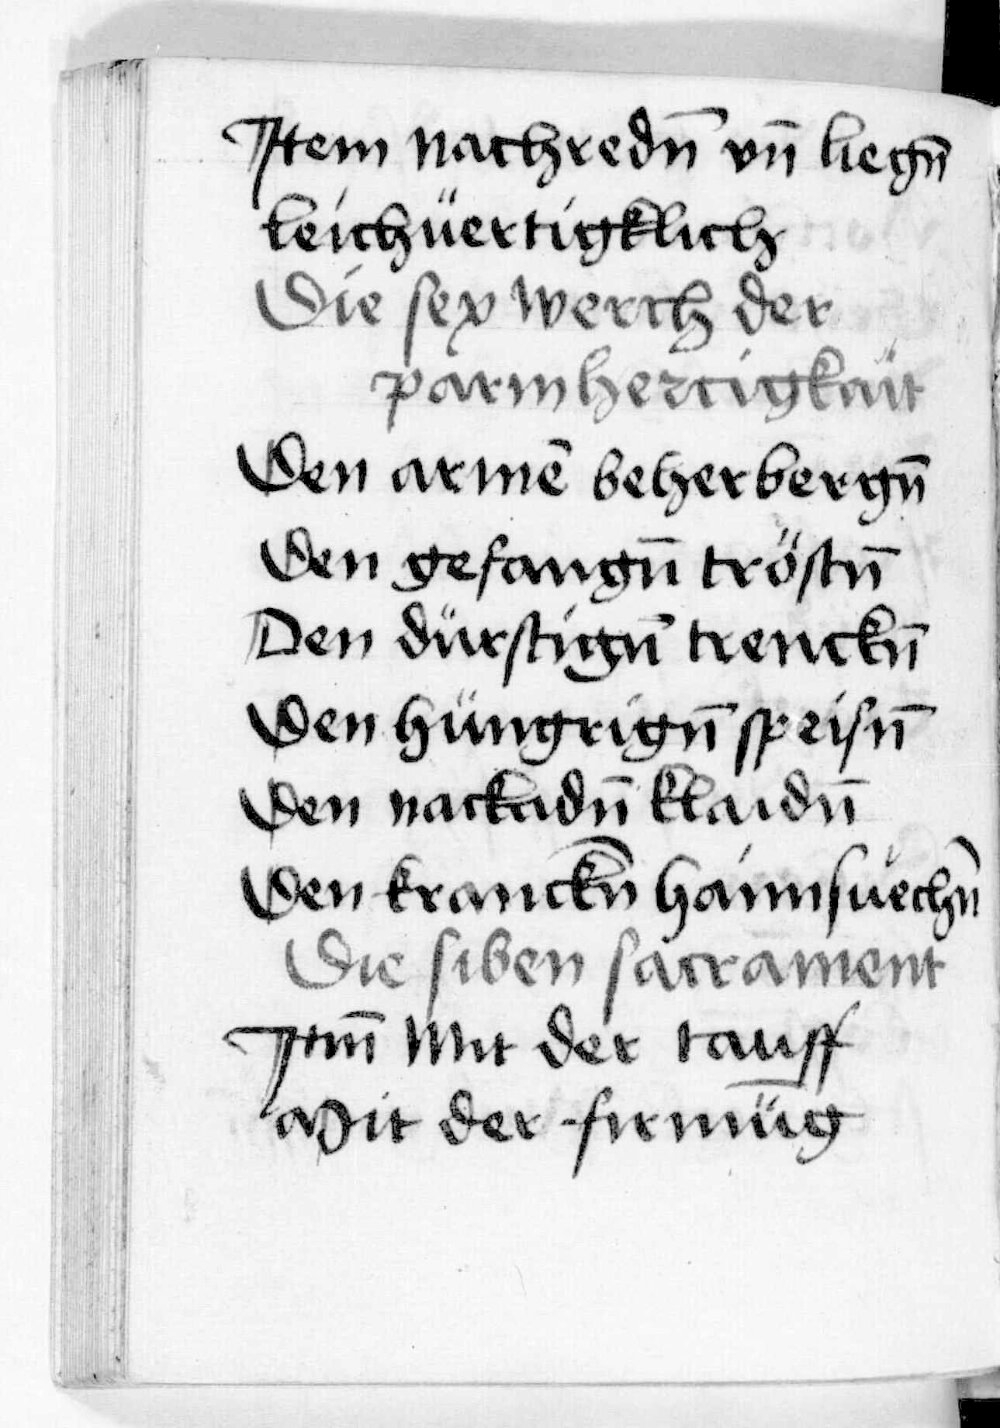 Item nachredn̄ vn̄ liegn̄
leichüertigklich
Die sex werch der
parmhertzigkait
Den armē beherbergn̄
Den gefangn̄ tröstn̄
Den dürstign̄ trenckn̄
Den hüngrign̄ speisn̄
Den nackadn̄ klaidn̄
Den kranckn̄ haimsuechn̄
Die siben sacrament
Itm̄ Mit der tauff
Mit der firmūg